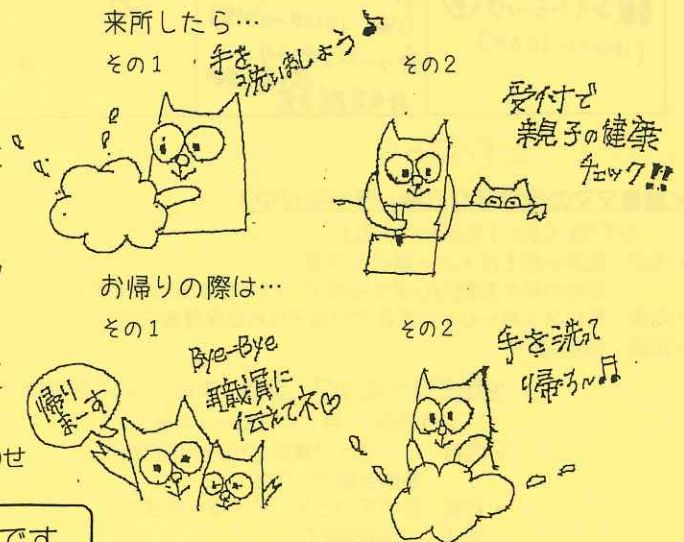 来所したら…
その1
手を
洗いましょう♪
その2
受付で
親子の健康
チェック!!
お帰りの際は…
その1
Bye-Bye
職員に
伝えてネ♡
帰り
まーす
その2
手を洗って
帰ろ〜♫
せ
です